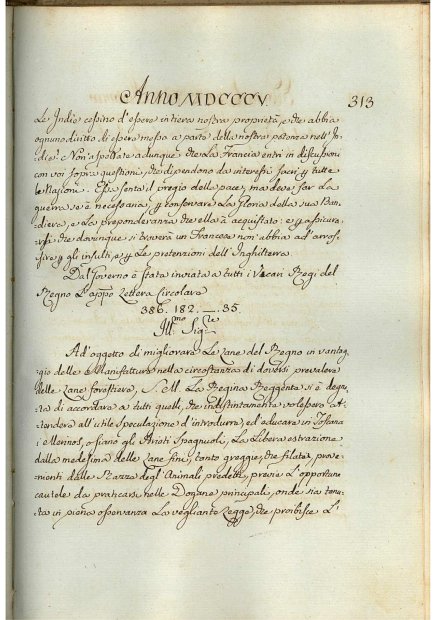 Anno MDCCCV.
313
Le Indie cessino d'essere intiera nostra proprietà, e che abbia
ognuno diritto di essere messo a parte della nostra potenza nell' In-
die. Non aspettate adunque che La Francia entri in discussioni
con voi sopra questioni, che dipendono da interessi sacri p tutte
le Nazioni. Essa sente il pregio della pace, ma deve far La
guerra se è necessaria, p conservare La Gloria della sua Ban-
diera, e La preponderanza che ella à acquistato: e p assicura-
rsi che dovunque si troverà un Francese non abbia ad arros-
sire p gli insulti, e p Le pretenzioni dell' Inghilterra.
Dal Governo è stata inviata a tutti i Vicari Regi del
Regno L'appo Lettera Circolare
386. 182. — .35.
Illmo Sigre
Ad' oggetto di migliorare Le Lane del Regno in vantag-
gio delle Manifatture nella circostanza di doversi prevalere
delle Lane forestiere, S. M. La Regina Reggente si è degna-
ta di accordare a tutti quelli, che indistintamente volessero At-
tendere all' utile Speculazione d'introdurre, ed' educare in Toscana
i Merinos, o siano gli Arieti Spagnuoli, La Libera estrazione
dalla medesima delle Lane fini, tanto greggie, che filate, prove-
nienti dalla Razza degl' Animali predetti, previe L' opportune
cautele da praticarsi nelle Dogane principali, onde sia tenu-
ta in piena osservanza La vegliante Legge, che proibisce L'